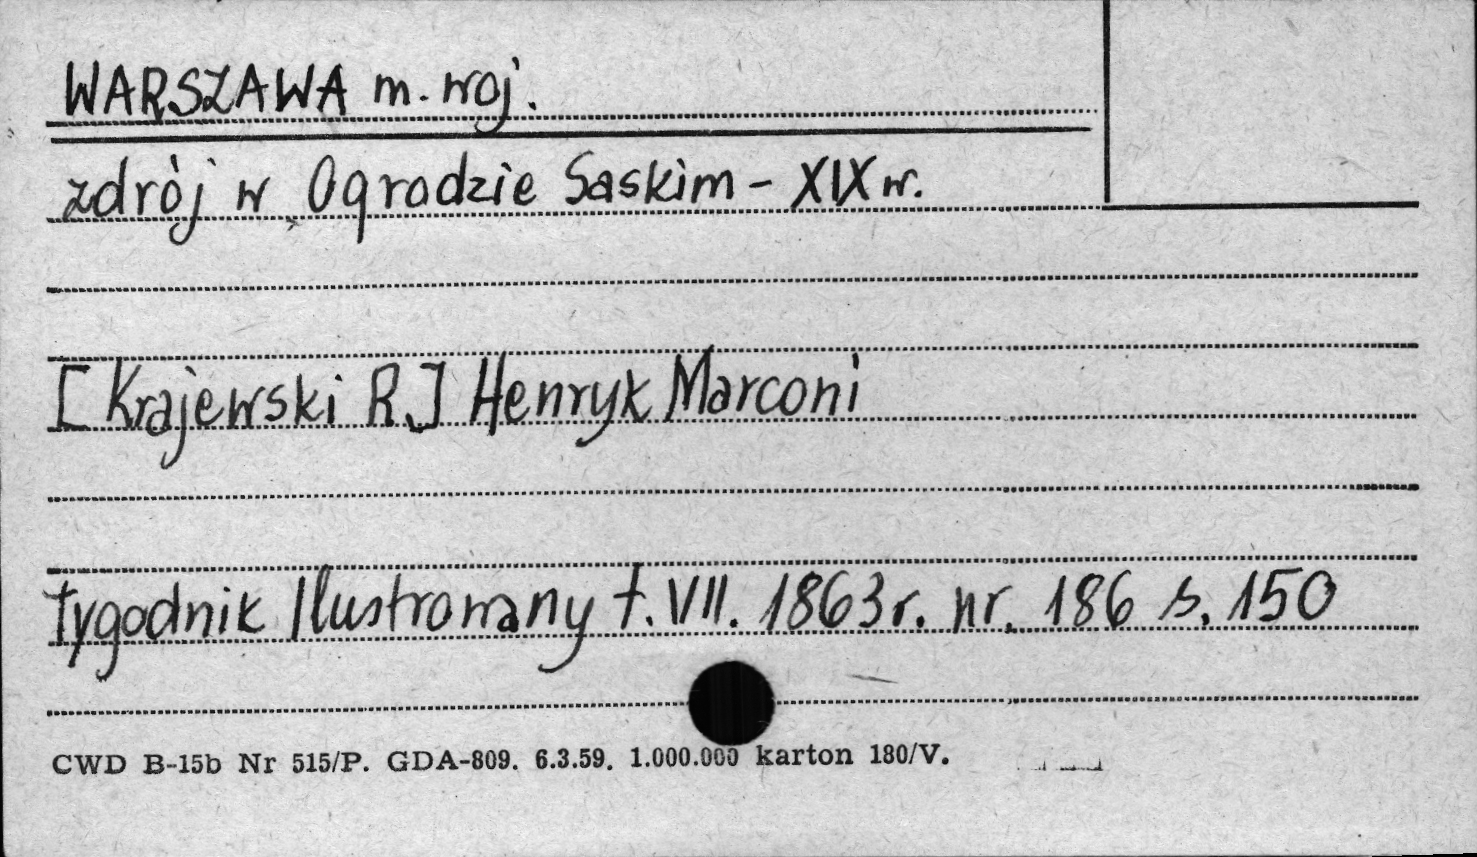 WARSZAWA m. woj.
zdrój w Ogrodzie Saskim - XIX w.
[Krajewski R.] Henryk Marconi
Tygodnik Ilustrowany t. VII. 1863 r. nr. 186 s. 150
CWD B-15b Nr 515/P. GDA-809. 6.3.59. 1.000.000 karton 180/V.